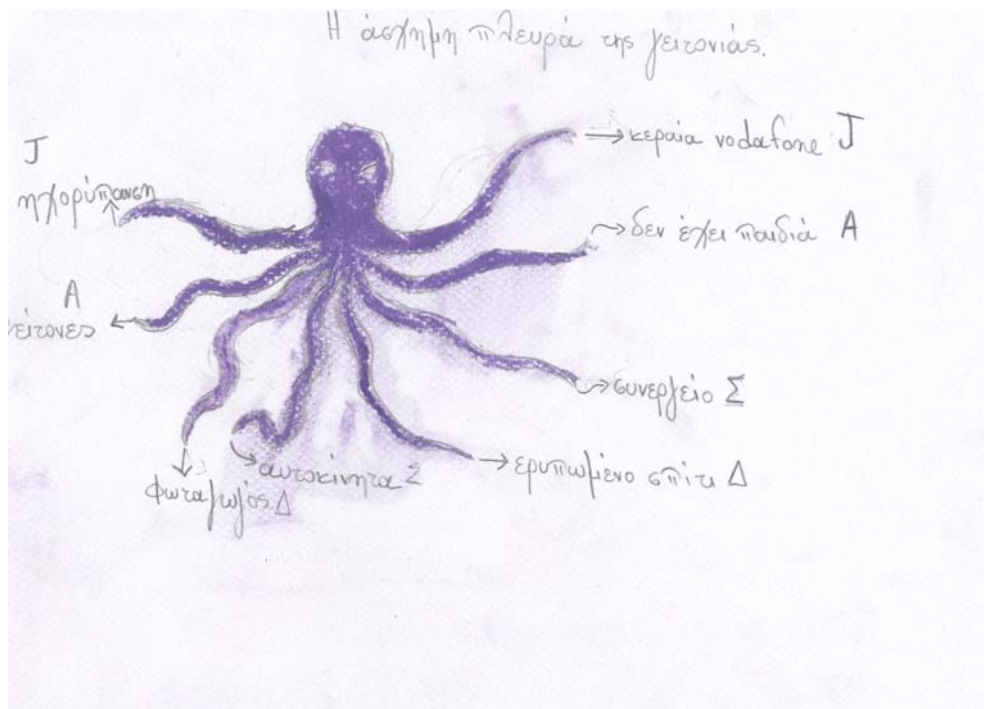 Η άσχημη πλευρά της γειτονιάς.
J
ηχορύπανση
→ κεραία vodafone J
δεν έχει παιδιά A
A
γείτονες
συνεργείο Σ
φωταγωγός Δ
αυτοκίνητα Σ
→ ερυπωμένο σπίτι Δ